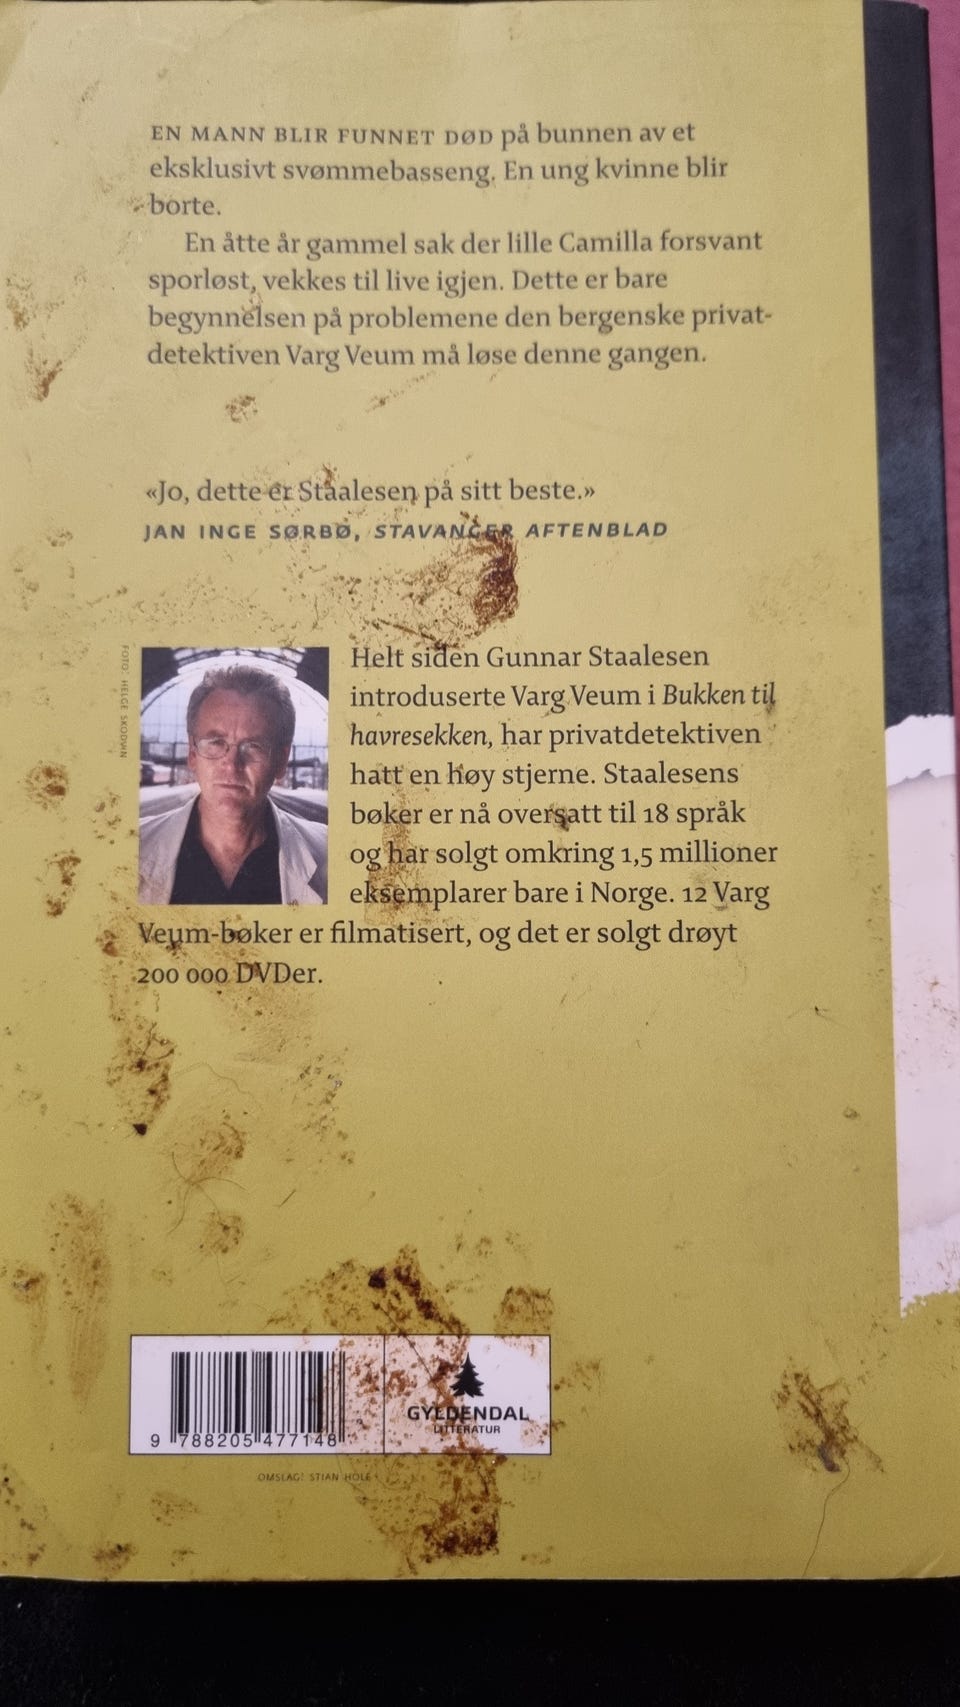 EN MANN BLIR FUNNET DØD på bunnen av et
eksklusivt svømmebasseng. En ung kvinne blir
borte.
En åtte år gammel sak der lille Camilla forsvant
sporløst, vekkes til live igjen. Dette er bare
begynnelsen på problemene den bergenske privat-
detektiven Varg Veum må løse denne gangen.
«Jo, dette er Staalesen på sitt beste.»
JAN INGE SØRBØ, STAVANGER AFTENBLAD
FOTO: HELGE SKODVIN
Helt siden Gunnar Staalesen
introduserte Varg Veum i Bukken til
havresekken, har privatdetektiven
hatt en høy stjerne. Staalesens
bøker er nå oversatt til 18 språk
og har solgt omkring 1,5 millioner
eksemplarer bare i Norge. 12 Varg
Veum-bøker er filmatisert, og det er solgt drøyt
200 000 DVDer.
9 788205 477148
GYLDENDAL
LITTERATUR
OMSLAG: STIAN HOLE